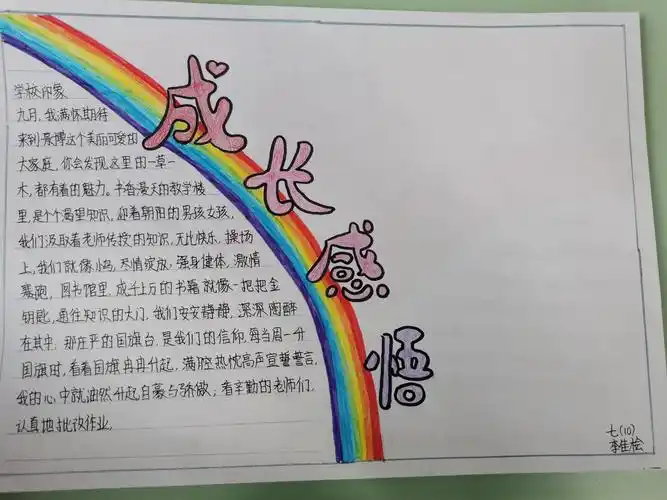 成长感悟
学校印象
九月,我满怀期待
来到景博这个美丽可爱的
大家庭,你会发现,这里的一草一
木,都有着的魅力。书香漫天的教学楼
里,是个个渴望知识,迎着朝阳的男孩女孩,
我们汲取着老师传授的知识,无比快乐,操场
上,我们就像小鸟,尽情绽放,强身健体,激情
晨跑,图书馆里,成千上万的书籍就像一把把金
钥匙,通往知识的大门,我们安安静静,深深陶醉
在其中,那庄严的国旗台,是我们的信仰,每当周一升
国旗时,看着国旗冉冉升起,满腔热忱高声宣誓誓言,
我的心中就油然升起自豪与骄傲;看辛勤的老师们,
认真地批改作业,
七(10)
李佳桧